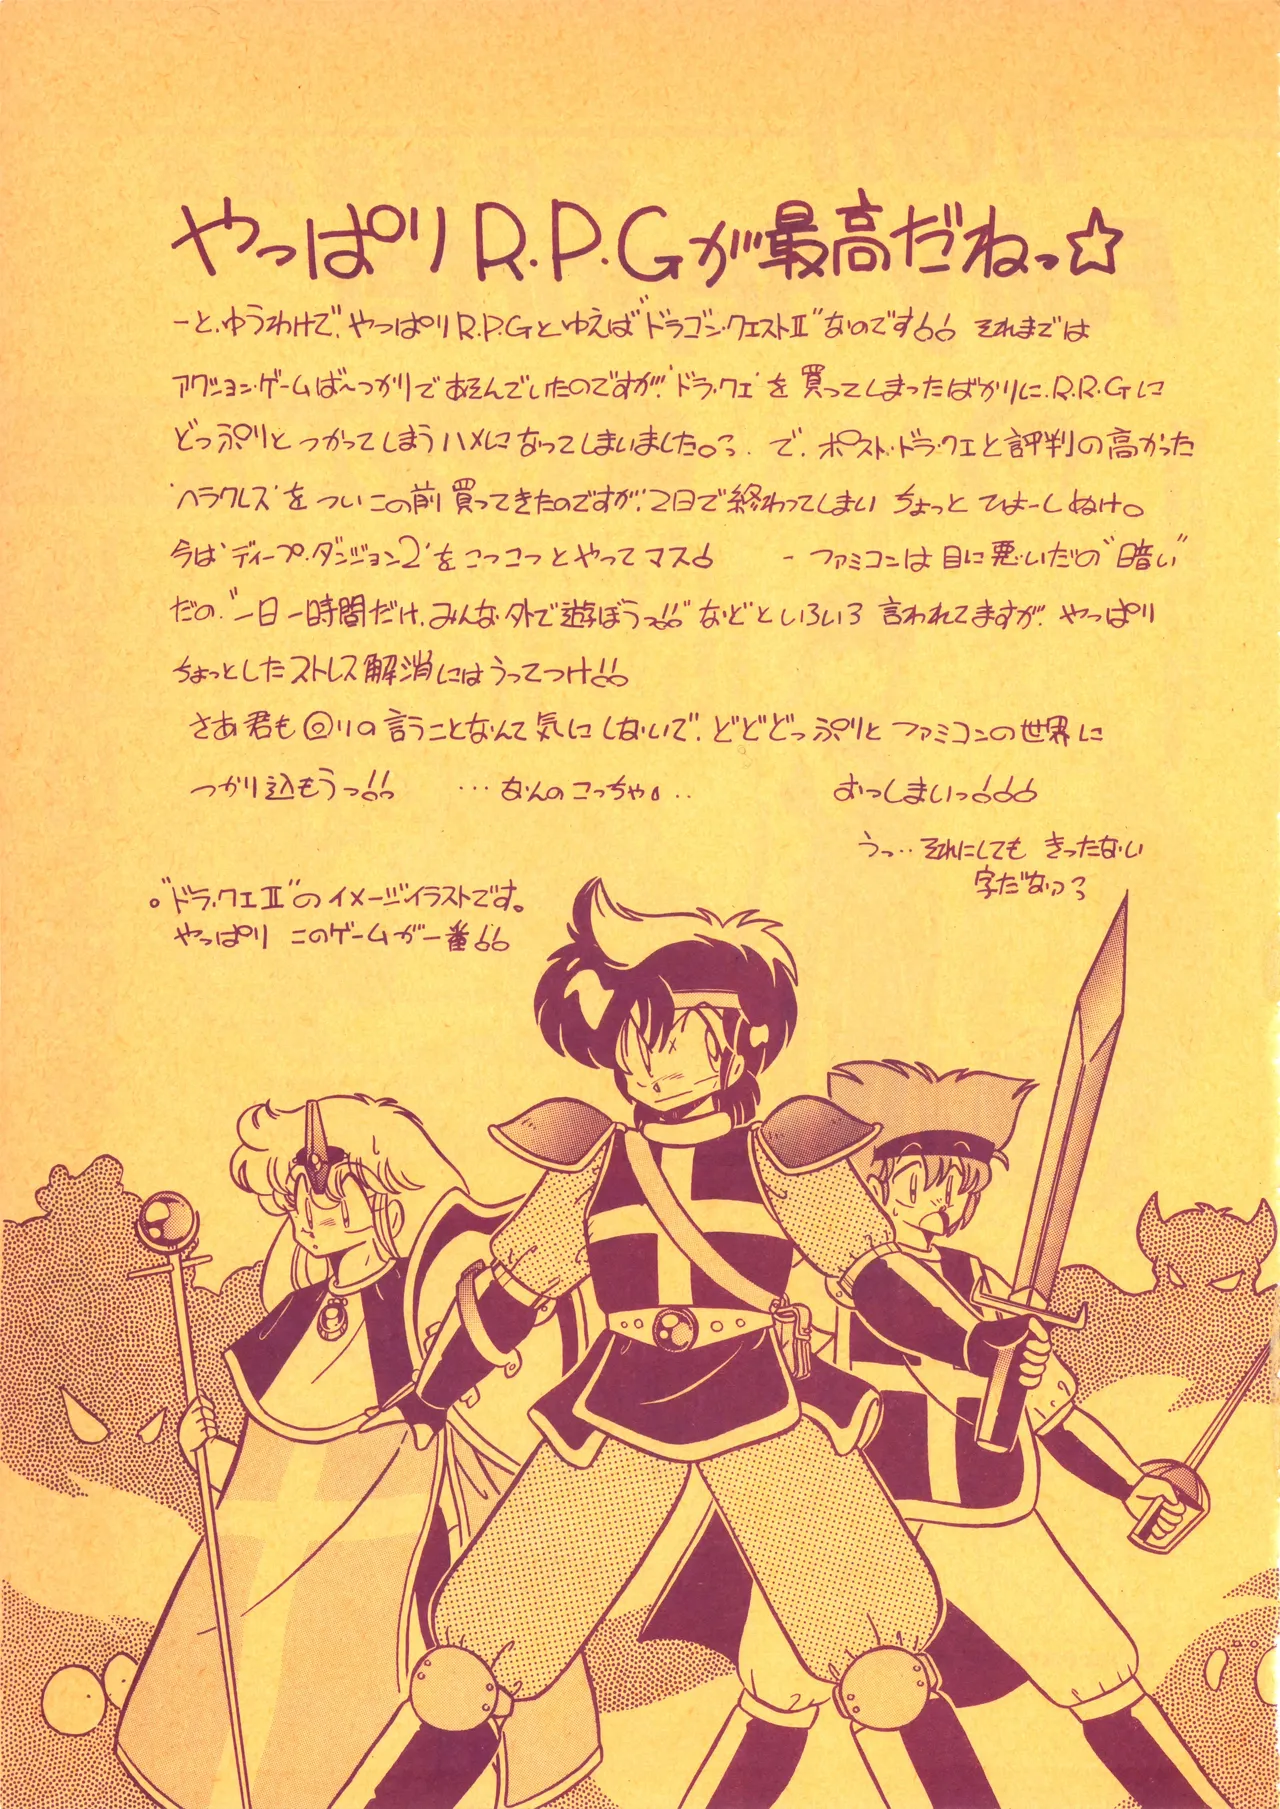 やっぱりR.P.Gが最高だねっ☆
ーと、ゆうわけで、やっぱりR.P.Gとゆえば"ドラゴン・クエストⅡ"なのです!! それまでは
アクション・ゲームば〜っかりであそんでいたのですが、'ドラ・クエ'を買ってしまったばかりに、R.P.Gに
どっぷりとつかってしまうハメになってしまいました。 で、ポスト・ドラ・クエと評判の高かった
'ヘラクレス'をついこの前買ってきたのですが、2日で終わってしまいちょっとひょーしぬけ。
今は'ディープ・ダンジョン2'をこつこつとやってマス! ーファミコンは目に悪いだの"暗い"
だの、"一日一時間だけ、みんな外で遊ぼうっ!!"などといろいろ言われてますが、やっぱり
ちょっとしたストレス解消にはうってつけ!!
さあ君も回りの言うことなんて気にしないで、どどどっぷりとファミコンの世界に
つかり込もうっ!! …なんのこっちゃ。.. おっしまいっ!!!
うっ‥それにしてもきったない
字だなっ
。"ドラ・クエⅡ"のイメージイラストです。
やっぱりこのゲームが一番!!